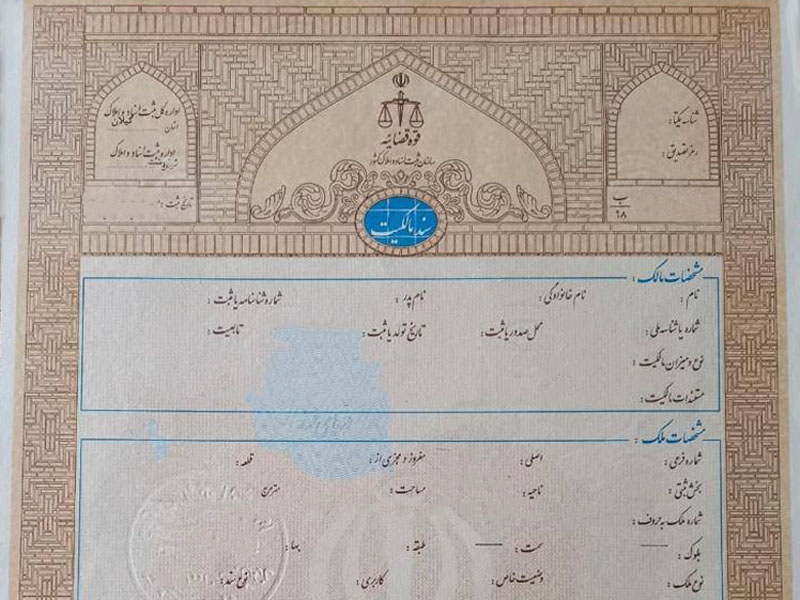 قوه قضائیه
سازمان ثبت اسناد و املاک کشور
شناسه یکتا :
رمز تصدیق :
ب
۱۸
اداره کل ثبت اسناد و املاک
استان گیلان
اداره ثبت اسناد و املاک
تاریخ ثبت :
سند مالکیت
مشخصات مالک :
نام : نام خانوادگی : نام پدر : شماره شناسنامه یا ثبت :
شماره یا شناسه ملی : محل صدور یا ثبت : تاریخ تولد یا ثبت : تابعیت :
نوع و میزان مالکیت :
مستندات مالکیت :
مشخصات ملک :
شماره فرعی : اصلی : مفروز و مجزی از : قطعه :
بخش ثبتی : ناحیه : مساحت : مترمربع
شماره ملک به حروف :
بلوک : سمت : طبقه : بها :
نوع ملک : وضعیت خاص : کاربری : نوع سند :